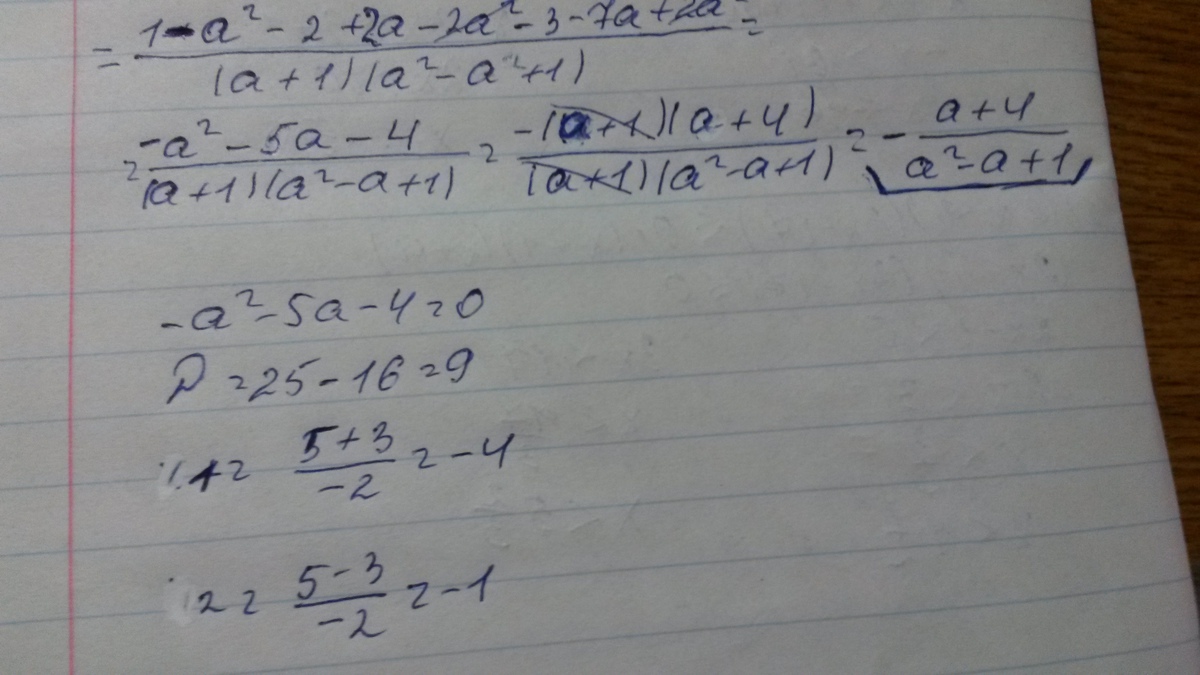 = (1-a² - 2 + 2a - 2a² - 3 - 7a + 2a²)/((a+1)(a² - a² + 1)) =
= (-a² - 5a - 4)/((a+1)(a² - a + 1)) = (-(a+1)(a+4))/((a+1)(a² - a + 1)) = - (a+4)/(a² - a + 1)
-a² - 5a - 4 = 0
D = 25 - 16 = 9
1 = (5+3)/(-2) = -4
2 = (5-3)/(-2) = -1